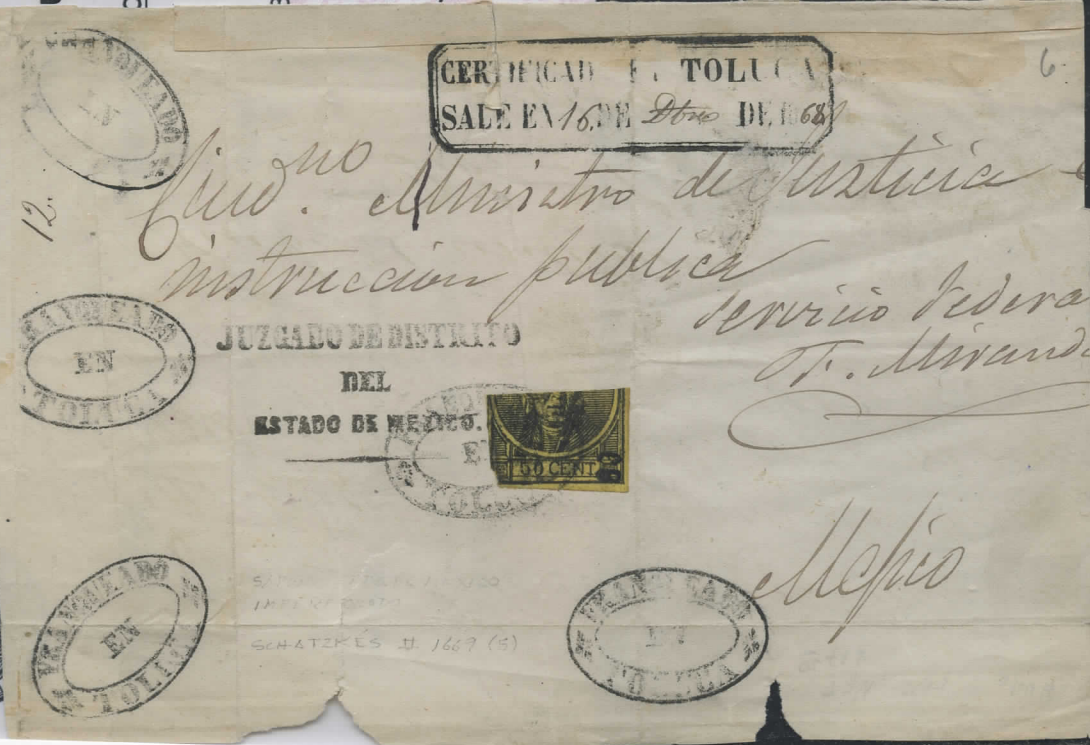 FRANQUEADO
EN
CERTIFICADO EN TOLUCA
SALE EN 16, DE Dbre DE 1868
6.
12.
Ciudno Ministro de Justicia e
instruccion publica
servicio Federal
F. Miranda
FRANQUEADO
EN
TOLUCA
JUZGADO DE DISTRITO
DEL
ESTADO DE MEXICO.
EN
TOLUCA
50 CENT
Mejico
FRANQUEADO
EN
TOLUCA
FRANQUEADO
EN
TOLUCA
SCHATZKES # 1669 (5)